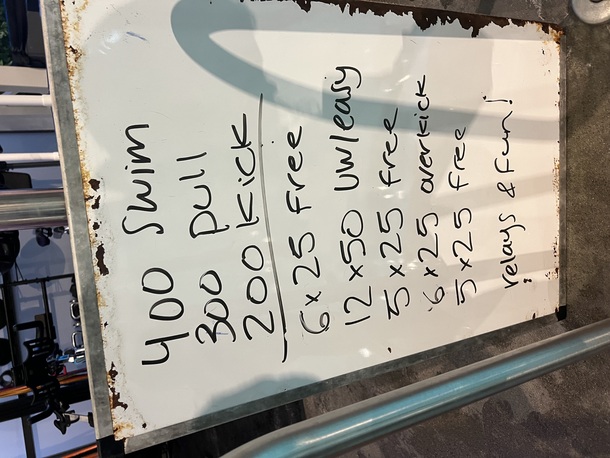 400 Swim
300 pull
200 Kick
6x25 free
12 x50 uw/easy
5x25 free
6x25 overkick
5x25 free
relays & fun!